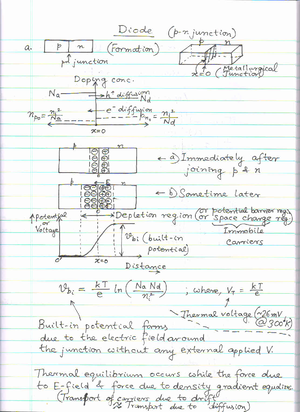 Diode (p-n junction)
a. p n (Formation) p n
pn junction
x=0 (Metallurgical
Junction)
Doping conc.
Na h⁺ diffusion Nd
e⁻ diffusion
npo = ni²/Na pno = ni²/Nd
x=0
p n
← a) Immediately after
joining p & n
← b) Sometime later
Potential
or Voltage
Depletion region (or potential barrier reg.
or space charge reg.)
Immobile
Carriers
Vbi (built-in
potential)
x=0
Distance →
Vbi = kT/e ln (Na Nd/ni²) ; where, VT = kT/e
Thermal voltage (~26mV
@300°K)
Built-in potential forms
due to the electric field around
the junction without any external applied V.
Thermal equilibrium occurs while the force due
to E-field & force due to density gradient equalize
(Transport of carriers due to drift
& Transport due to diffusion)